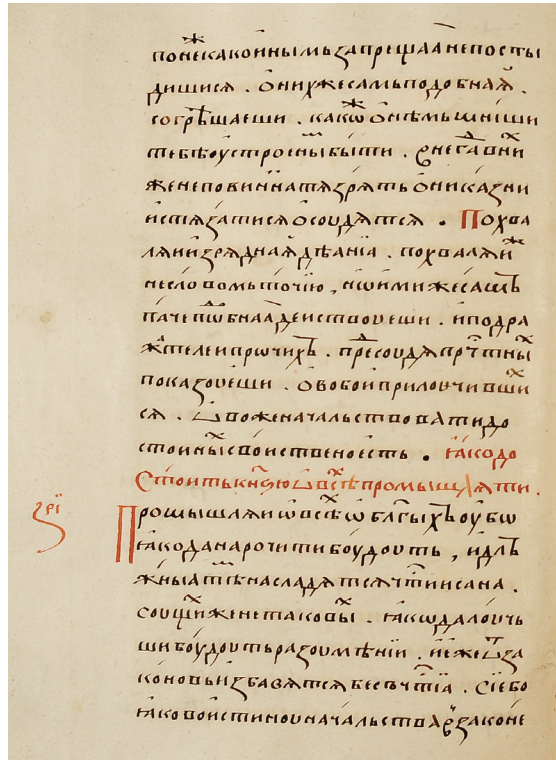 понеже какои нымъ запрещаа непосты
дишися . онихже самь подобнаа .
согрѣшаеши . какѡ онѣмь инїши
тебѣ оустроены быти .
же неповинна тя зрять они казни
истязатися осоудятся . Похва
ляи изряднаа дѣанїа . похваляи же
несловомь точїю , нѡ ими же самъ
паче подобнаа дѣиствоуеши . и подра
жателеи прочихъ .
показоуеши . обобои прилоучивши
ся . бвоженачальство вати до
стоиных своиствено есть . ꙗко до
стоить кнзю ѡ всѣх промышляти .
зрі
Промышляи ѡ всѣх ѡ благыхъ оубѡ
ꙗко да нарочити боудоуть , и длъ
жныа насладятся чти и сана .
соущих же не таковы х . ꙗкѡ да лоучь
ши боудоуть разоумѣнїи . и еже ѿ за
коновь избавятся бесчтїа . Сїе бо
ꙗко воистиноу начальства законе